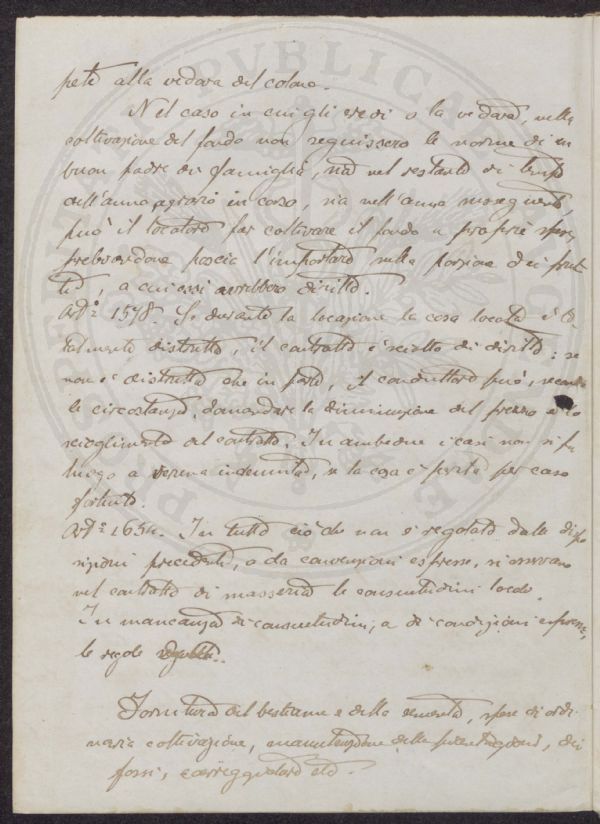 peti alla vedova del colono.
Nel caso in cui gli eredi o la vedova, nella
coltivazione del fondo non seguissero le norme di un
buon padre di famiglia, sia nel restante di tempo
dell'anno agrario in corso, sia nell'anno susseguente,
può il locatore far coltivare il fondo a proprie spese,
prelevandone poscia l'importare sulla porzione dei frut-
ti, a cui essi avrebbero diritto.
Art.º 1578. Se durante la locazione la cosa locata è to-
talmente distrutta, il contratto è sciolto di diritto: se
non è distrutta che in parte, il conduttore può, secondo
le circostanze, domandare la diminuzione del prezzo o lo
scioglimento del contratto. In ambedue i casi non si fa
luogo a veruna indennità, se la cosa è perita per caso
fortuito.
Art.º 1654. In tutto ciò che non è regolato dalle dispo-
sizioni precedenti, o da convenzioni espresse, si osservano
nel contratto di masseria le consuetudini locali.
In mancanza di consuetudini, o di condizioni espresse,
le regole
Fornitura del bestiame e delle sementi, spese di ordi-
naria coltivazione, manutenzione delle piantagioni, dei
fossi, carreggiature etc.
PVBLICAE